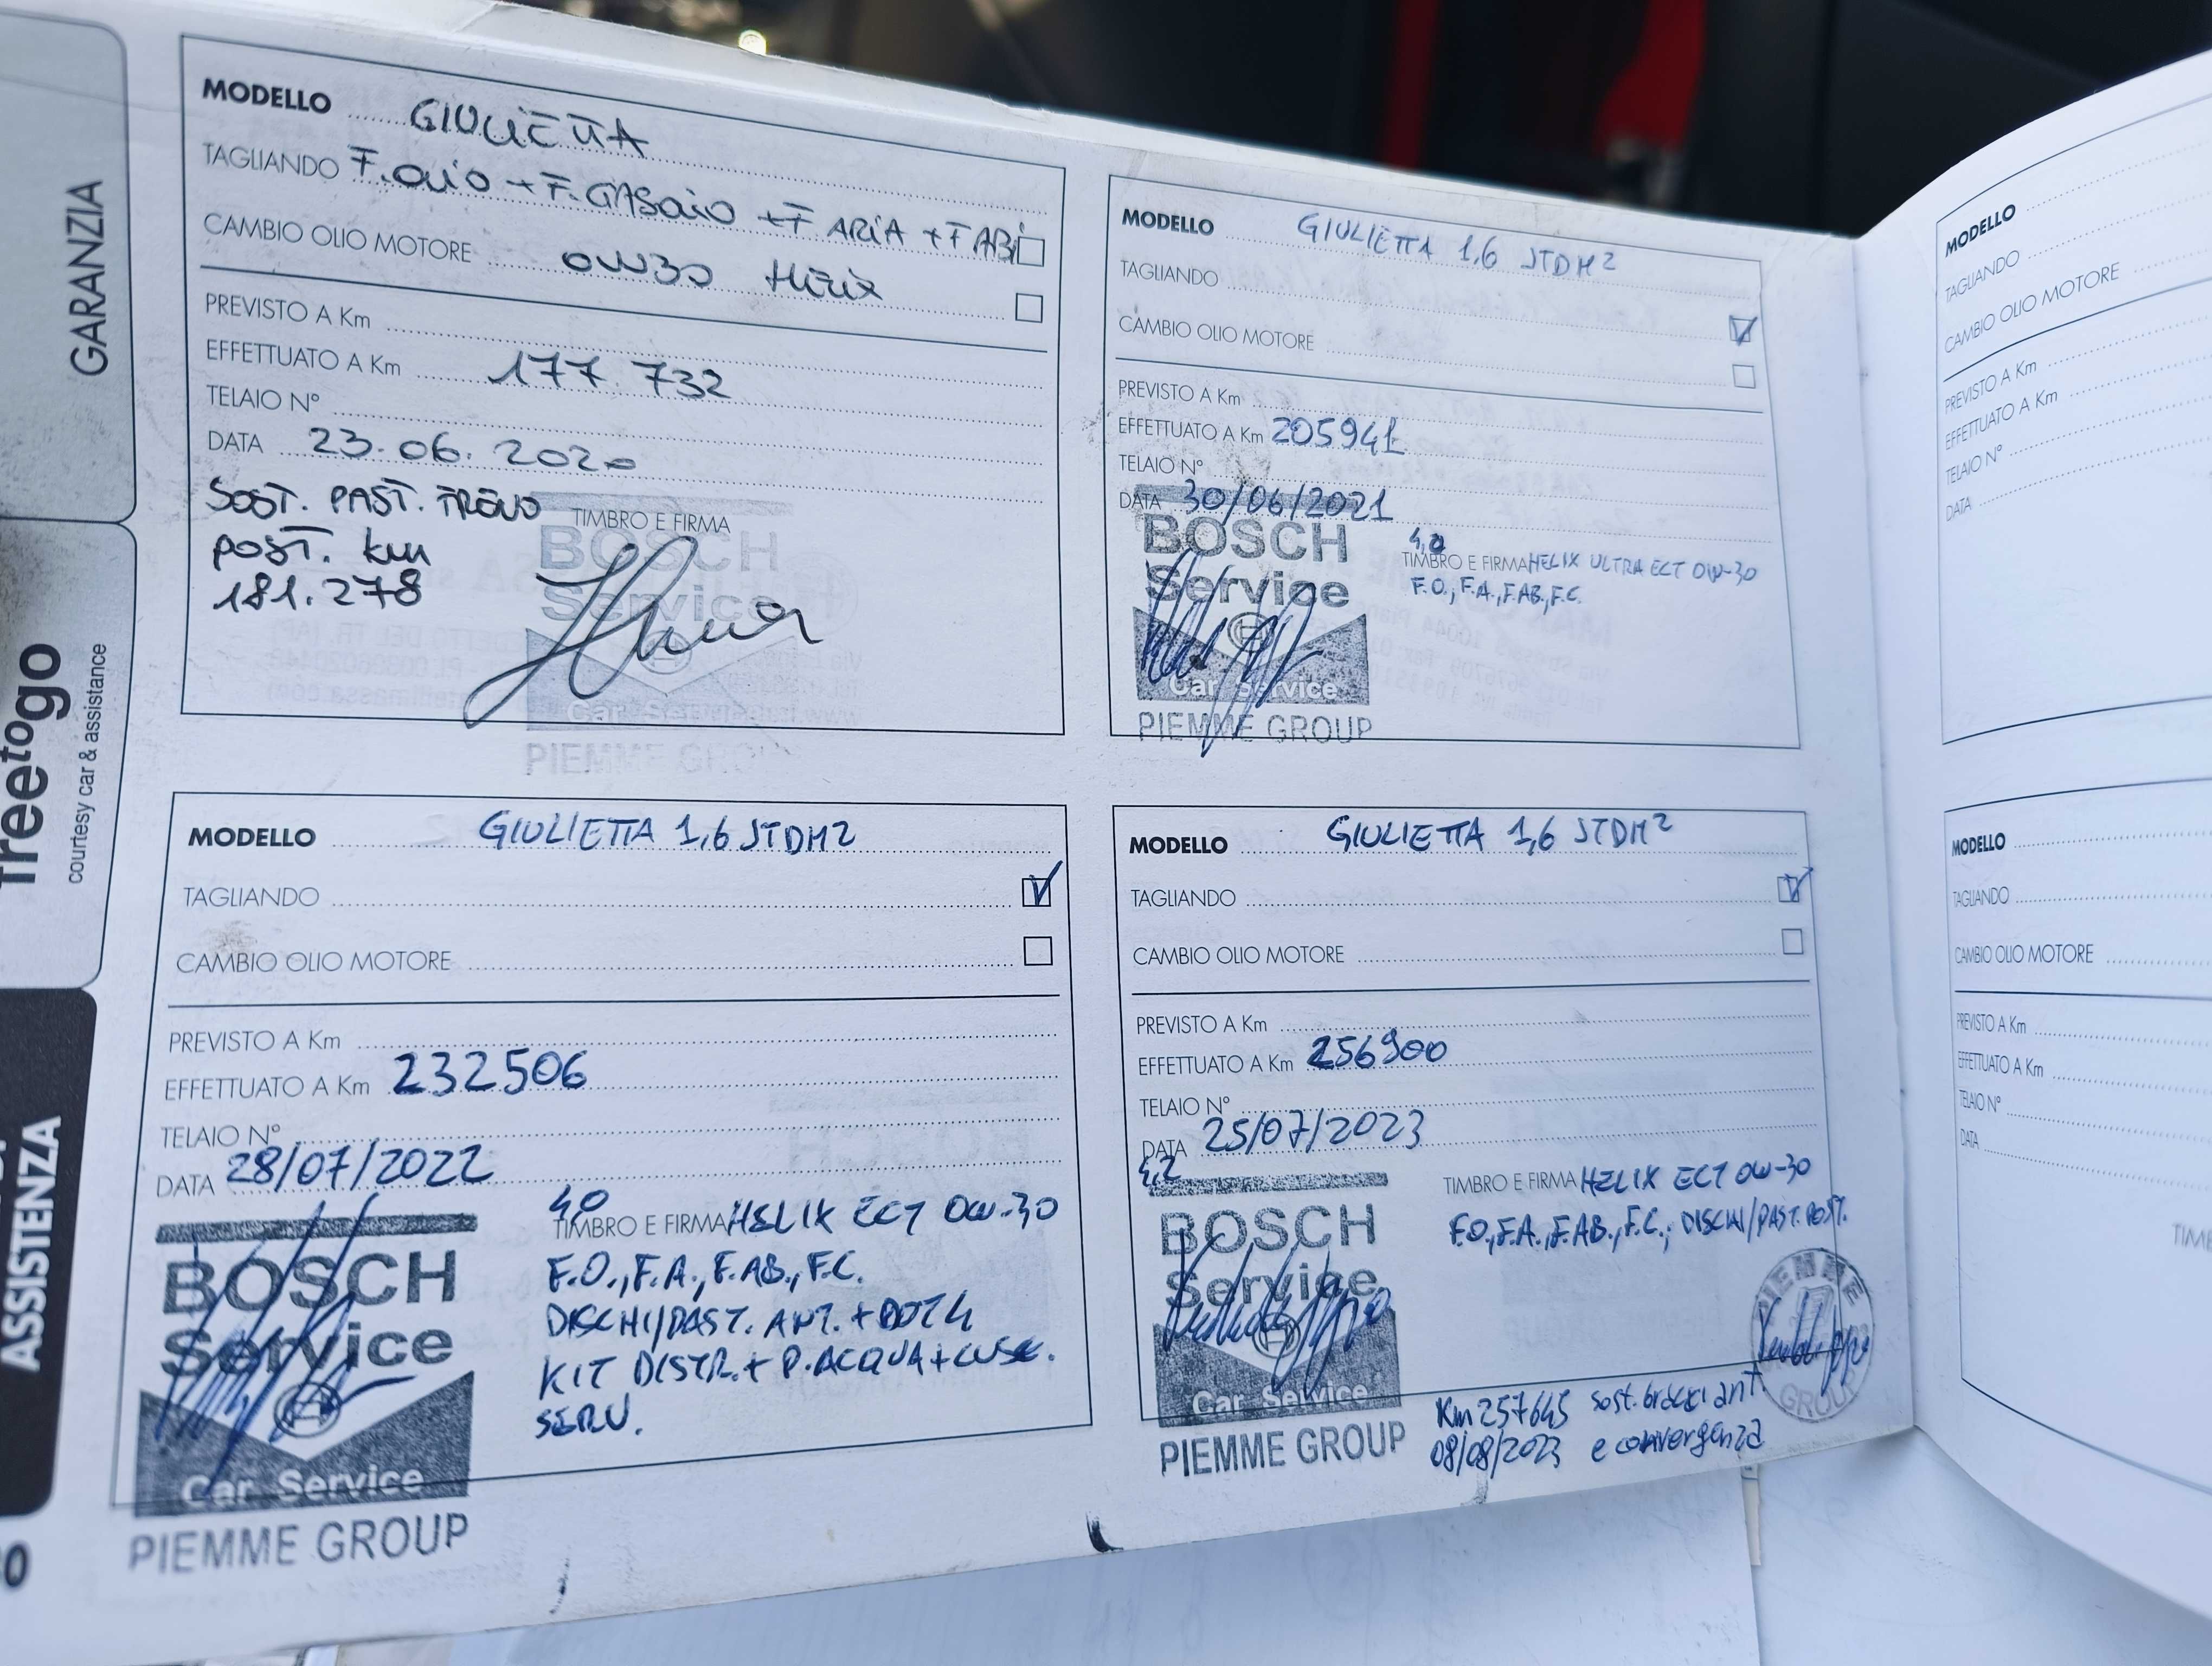 GARANZIA
Treetogo
courtesy car & assistance
ASSISTENZA
MODELLO GIULIETTA
TAGLIANDO F.OLIO + F.GASOLIO + F ARIA + F ABI
CAMBIO OLIO MOTORE 0W30 HELIX
PREVISTO A Km
EFFETTUATO A Km 177.732
TELAIO N°
DATA 23.06.2020
SOST. PAST. FRENO
POST. km
181.278
TIMBRO E FIRMA
BOSCH
Service
Car Service
PIEMME GROUP
MODELLO GIULIETTA 1,6 JTDM2
TAGLIANDO
CAMBIO OLIO MOTORE
PREVISTO A Km
EFFETTUATO A Km 205941
TELAIO N°
DATA 30/06/2021
TIMBRO E FIRMA HELIX ULTRA ECT 0W-30
F.O., F.A., F.AB., F.C.
BOSCH
Service
Car Service
PIEMME GROUP
MODELLO GIULIETTA 1,6 JTDM2
TAGLIANDO
CAMBIO OLIO MOTORE
PREVISTO A Km
EFFETTUATO A Km 232506
TELAIO N°
DATA 28/07/2022
4,0
TIMBRO E FIRMA HELIX ECT 0W-30
F.O., F.A., F.AB., F.C.
DISCHI/PAST. ANT. + DOT4
KIT DISTR. + P.ACQUA + CUSC.
SERV.
BOSCH
Service
Car Service
PIEMME GROUP
MODELLO GIULIETTA 1,6 JTDM2
TAGLIANDO
CAMBIO OLIO MOTORE
PREVISTO A Km
EFFETTUATO A Km 256900
TELAIO N°
DATA 25/07/2023
4,2
TIMBRO E FIRMA HELIX ECT 0W-30
F.O., F.A., F.AB., F.C., DISCHI/PAST. POST.
BOSCH
Service
Car Service
PIEMME GROUP
PIEMME
GROUP
Km 257645 sost. bracci ant.
08/08/2023 e convergenza
MODELLO
TAGLIANDO
CAMBIO OLIO MOTORE
PREVISTO A Km
EFFETTUATO A Km
TELAIO N°
DATA
MODELLO
TAGLIANDO
CAMBIO OLIO MOTORE
PREVISTO A Km
EFFETTUATO A Km
TELAIO N°
DATA